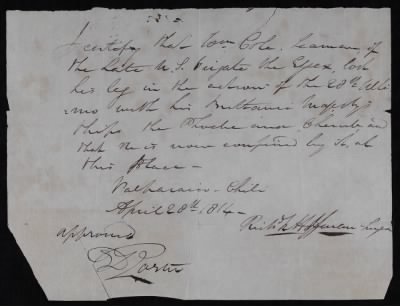 I certify that Wm Cole, Seaman, of
the late U.S. Frigate the Essex, lost
his leg in the action of the 28th Ulti
mo with his Britannic Majesty's
Ships the Phoebe and Cherub and
that he is now confined by it at
this Place -
Valparaiso - Chili
April 28th 1814 -
Richd K Hoffman
approved
D Porter